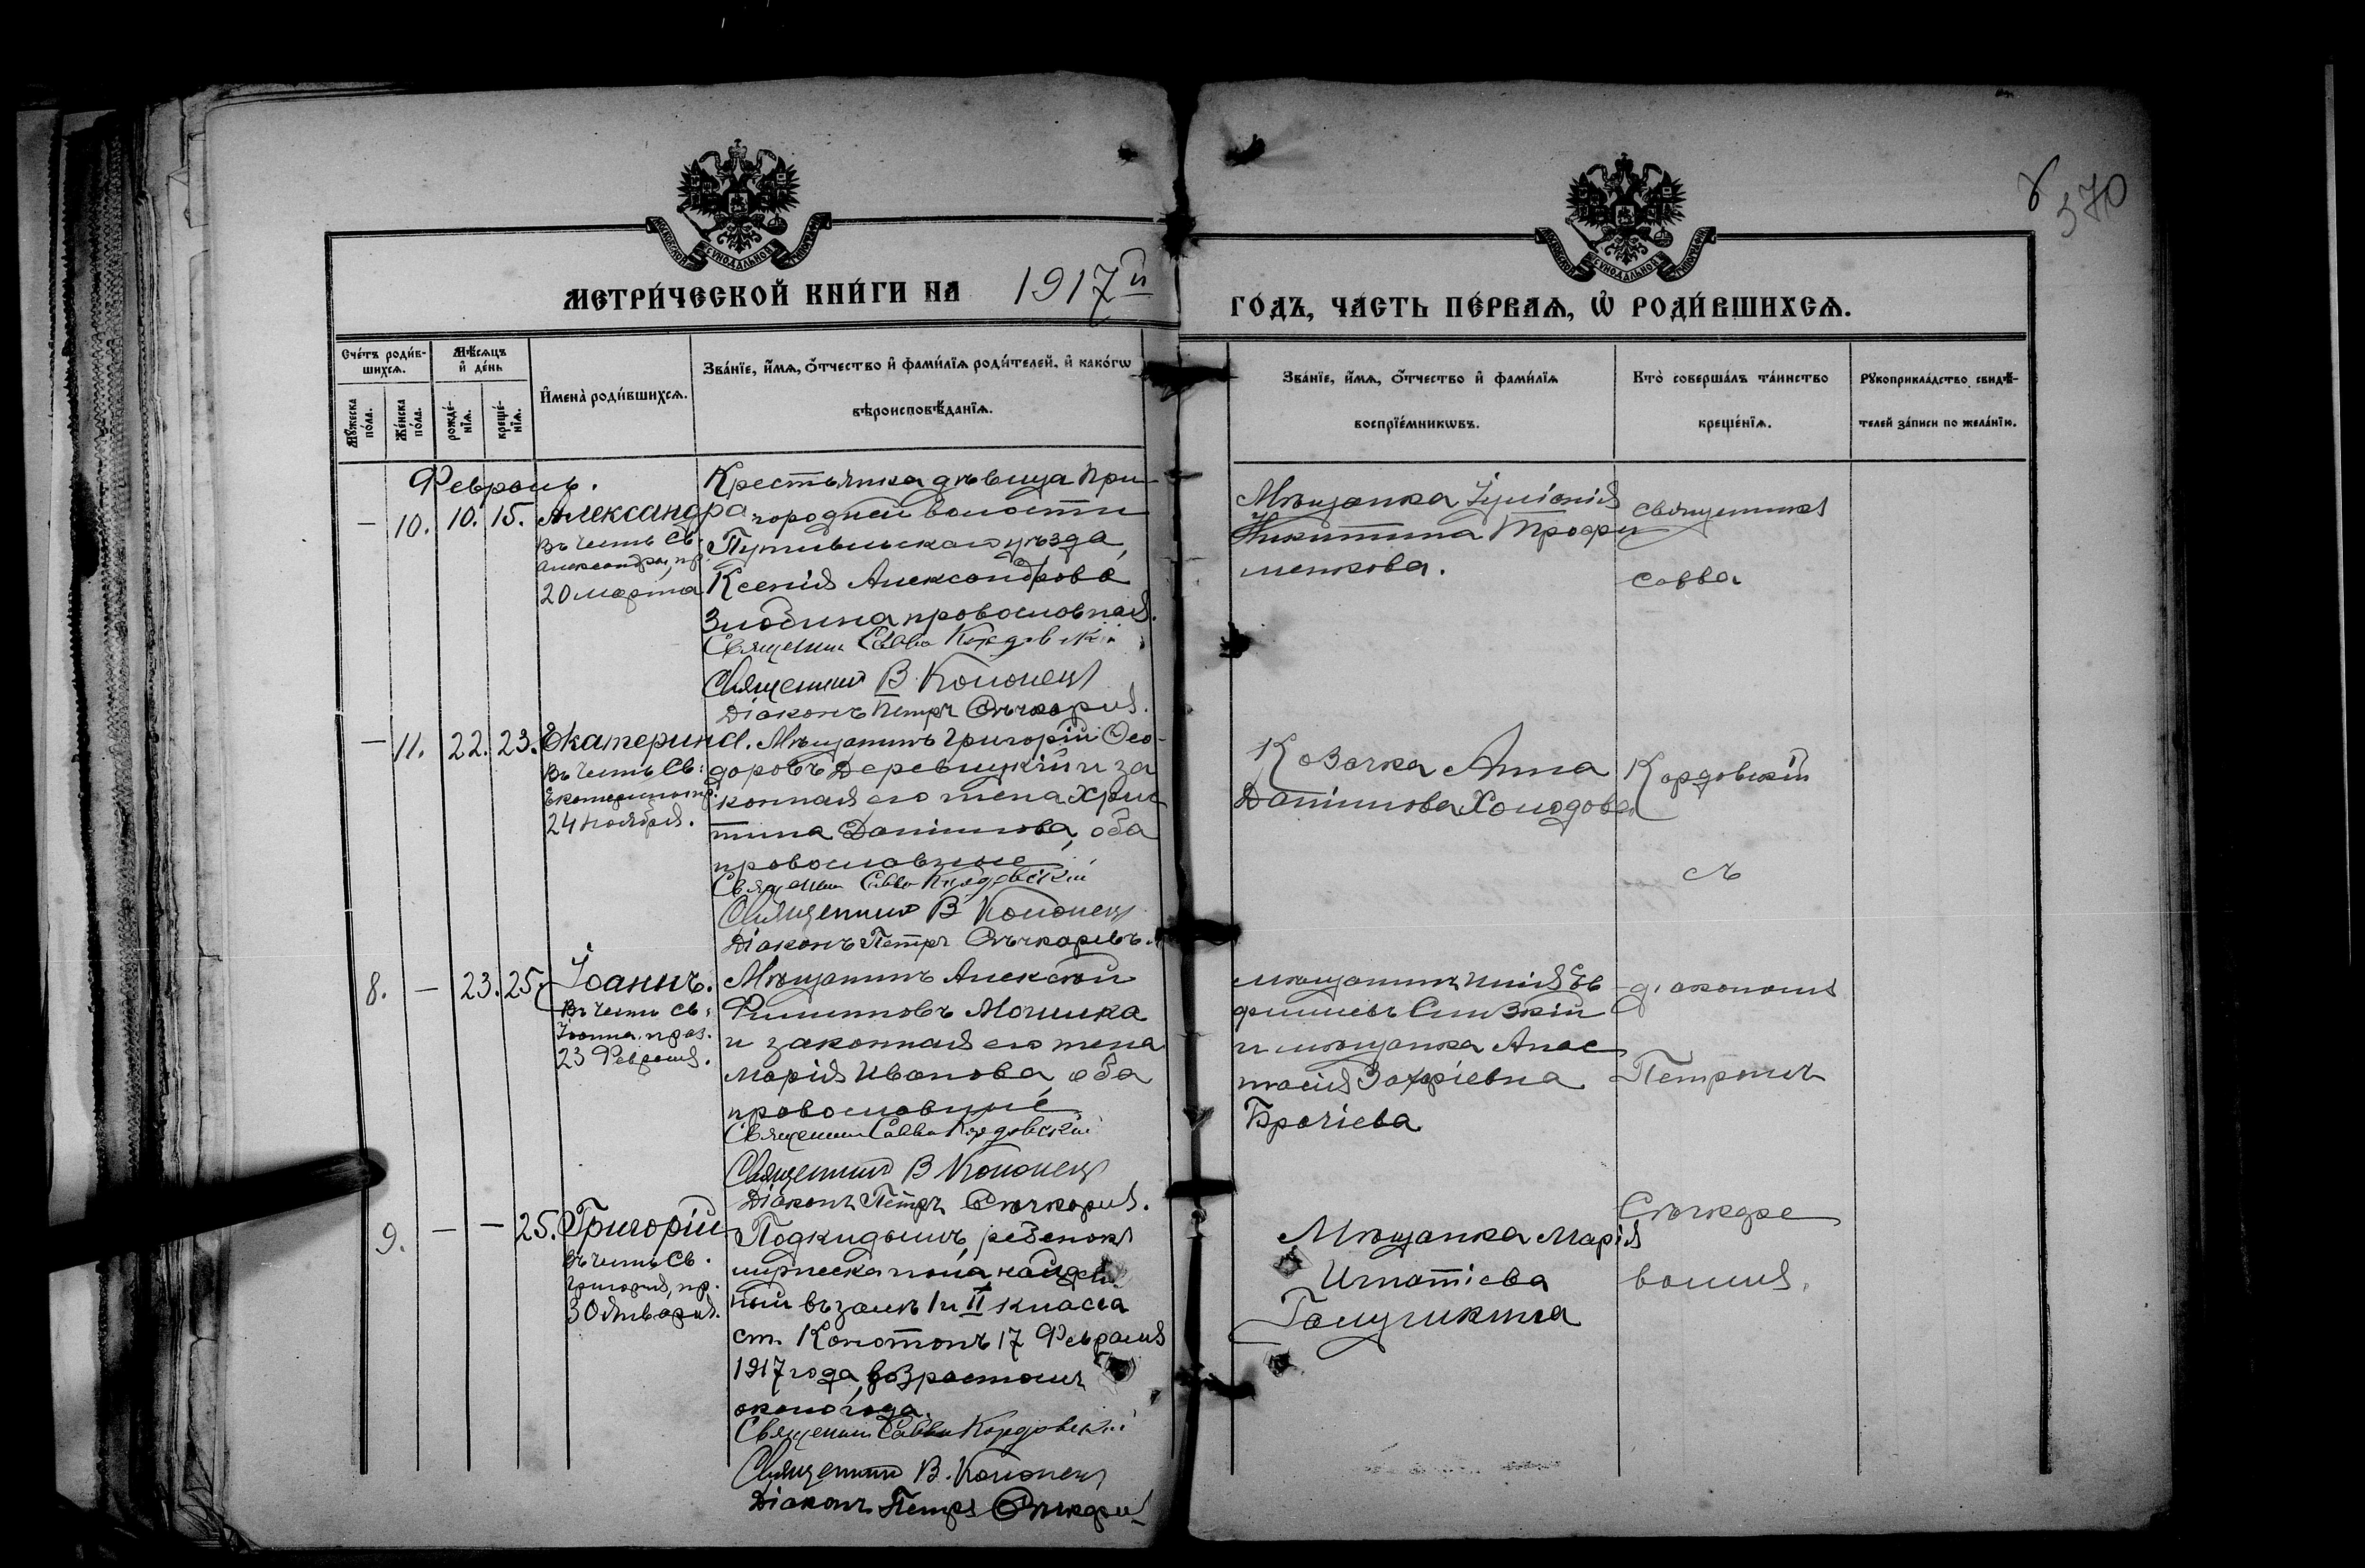 8
370
МЕТРИ́ЧЕСКОЙ КНИ́ГИ НА 1917й
ГО́ДЪ, ЧА́СТЬ ПЕ́РВАЯ, Ѡ РОДИ́ВШИХСЯ.
Сче́тъ роди́вшихся.
Му́жеска по́ла.
Же́нска по́ла.
Мѣ́сяцъ и де́нь
рожде́нїя.
креще́нїя.
Имена̀ роди́вшихся.
Зва́нїе, и́мя, о́тчество и фами́лїя роди́телей, и како́гѡ
вѣроисповѣ́данїя.
Зва́нїе, и́мя, о́тчество и фами́лїя
воспрїе́мникѡвъ.
Кто̀ соверша́лъ та́инство
креще́нїя.
Рукоприкла́дство свидѣ́-
телей за́писи по жела́нїю.
Февраль.
— 10. 10. 15. Александра
Въ честь Св.
Александры, пр.
20 марта
Крестьянка дѣвица При-
городней волости
Путивльскаго уѣзда,
Ксенія Александрова
Злобина православная.
Священник Савва Кордовскій
Священник В. Кононец
Діаконъ Петръ Сѣчкарев.
Мѣщанка Іуліанія
Никитина Трофи
менкова.
Священникъ
Савва
— 11. 22. 23. Екатерина.
Въ честь Св.
Екатерины, пр.
24 ноября.
Мѣщанинъ Григорій Ѳео-
доровъ Деревицкій и за
конная его жена Христ
тина Даніилова, оба
православные
Священник Савва Кордовскій
Священник В Кононец
Діаконъ Петръ Сѣчкаревъ.
Козачка Анна
Даніилова Холодова
Кордовскій
съ
8. — 23. 25. Іоаннъ.
Въ честь Св.
Іоанна, праз.
23 Февраля.
Мѣщанинъ Алексѣй
Филипповъ Мочилка
и законная его жена
Марія Иванова, оба
православные
Священник Савва Кордовскій
Священник В Кононец
Діаконъ Петръ Сѣчкарев.
мѣщанинъ Илія
и мѣщанка Анас
тасія Захаріевна
діакономъ
Петромъ
9. — — 25. Григорій
Въ честь Св.
Григорія, пр.
30 января.
Подкидышъ, ребенокъ
мужеска пола, найден
ный въ залѣ I и II класса
ст. Конотопъ 17 Февраля
1917 года, возрастомъ
около года.
Священник Савва Кордовскій
Священник В. Кононец
Діаконъ Петръ Сѣчкарев
Мѣщанка Марія
Игнатіева
Галушкина
Сѣчкаре
вымъ.